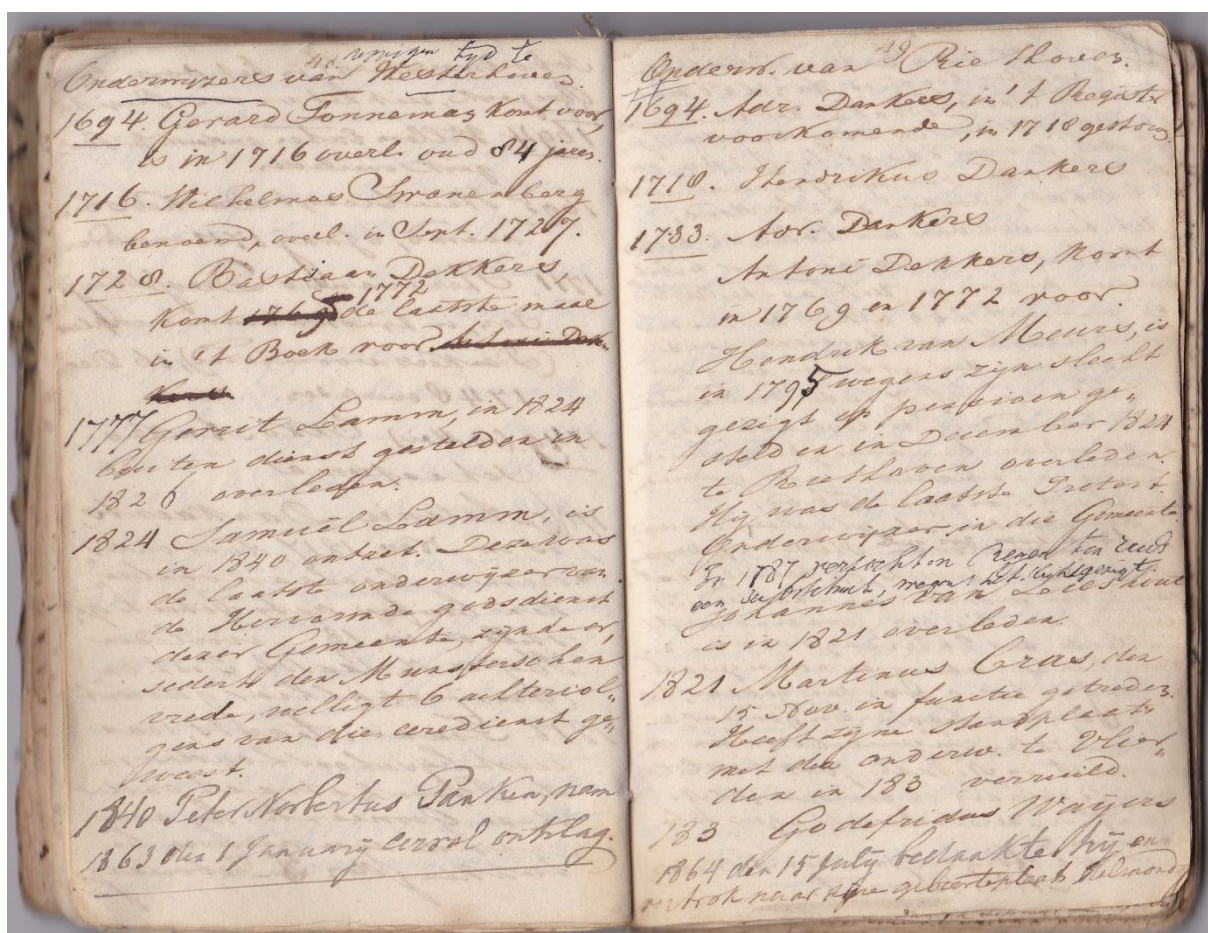 48
vroegen tyd te
Onderwyzers van Westerhoven.
1694. Gerard Tonnemaz komt voor,
is in 1716 overl. oud 84 jaren.
1716. Wilhelmus Swanenberg
benoemd, overl. in Sept. 1727.
1728. Bastiaan Dekkers,
1772
komt de laatste maal
in 't Boek voor
1777 Gerrit Lamm, in 1824
buiten dienst gesteld en in
1826 overleden.
1824 Samuël Lamm, is
in 1840 ontzet. Deze was
de laatste onderwijzer van
de Hervormde godsdienst
dezer Gemeente, zijnde er,
sedert den Munsterschen
vrede, welligt 6 achtervol„
gens van die eeredienst ge„
weest.
1840 Peter Norbertus Panken, nam
1863 den 1 January eervol ontslag.
49
Onderw. van Riethoven.
1694. Adr. Dankers, in 't Register
voorkomende, in 1718 gestorv.
1718. Hendrikus Dankers
1733. Adr. Dankers
Antoni Dekkers, komt
in 1769 en 1772 voor.
Hendrik van Meurs, is
in 1795 wegens zijn slecht
gezigt op pensioen ge„
steld en in December 1824
te Riethoven overleden.
Hij was de laatste Protest.
Onderwijzer in die Gemeente.
In 1787 verzocht en kreeg hij reeds
een adsistent, wegens het slecht gezigt.
Johannes van Lieshout
is in 1821 overleden.
1821 Martinus Cras, den
15 Nov. in functie getreden.
Heeft zijne standplaats
met den onderw. te Vlier„
den in 183 verruild.
183 Godefridus Waijers
1864 den 15 July bedankte hij en
vertrok naar zijne geboorteplaats Helmond